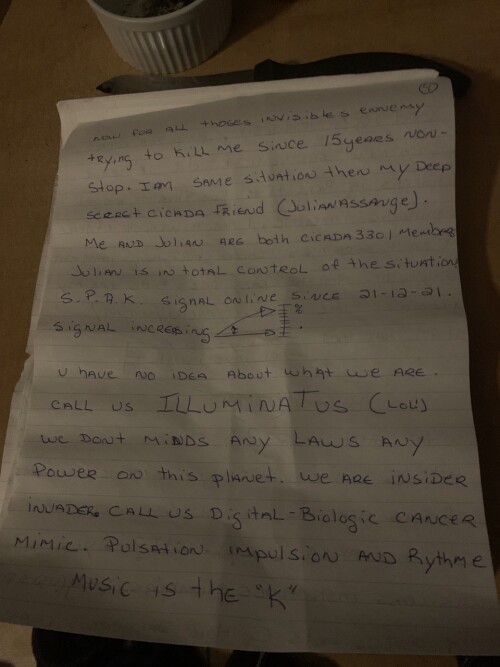 now FOR ALL thoses invisibles ennemy
trying to Kill me since 15 years non-
Stop. I AM SAME Situation then my Deep
secret Cicada friend (Julian Assange).
Me AND Julian ARE both Cicada 3301 Members
Julian is in total control of the situation
S.P.A.K. Signal online since 21-12-21.
signal increasing
u have no idea about what we are.
CALL US ILLUMINATUS (LOL!)
WE DONT MINDS ANY LAWS ANY
POWER ON this planet. WE ARE INSIDER
INVADER. CALL US Digital-Biologic CANCER
MIMIC. Pulsation impulsion AND Rythme
Music is the "K"